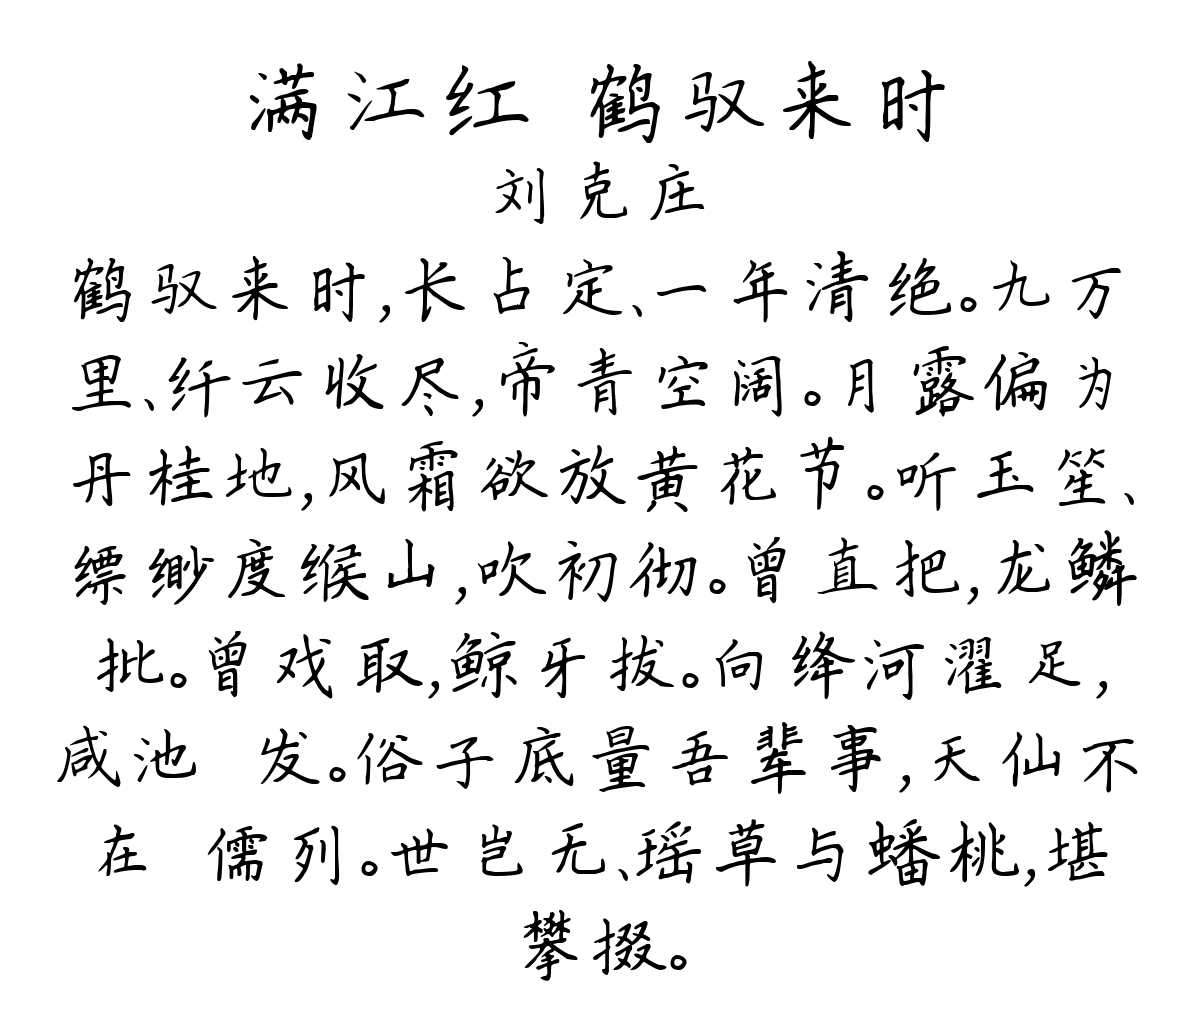 满江红 鹤驭来时
刘克庄
鹤驭来时,长占定、一年清绝。九万
里、纤云收尽,帝青空阔。月露偏为
丹桂地,风霜欲放黄花节。听玉笙、
缥缈度缑山,吹初彻。曾直把,龙鳞
批。曾戏取,鲸牙拔。向绛河濯足,
咸池 发。俗子底量吾辈事,天仙不
在 儒列。世岂无、瑶草与蟠桃,堪
攀掇。